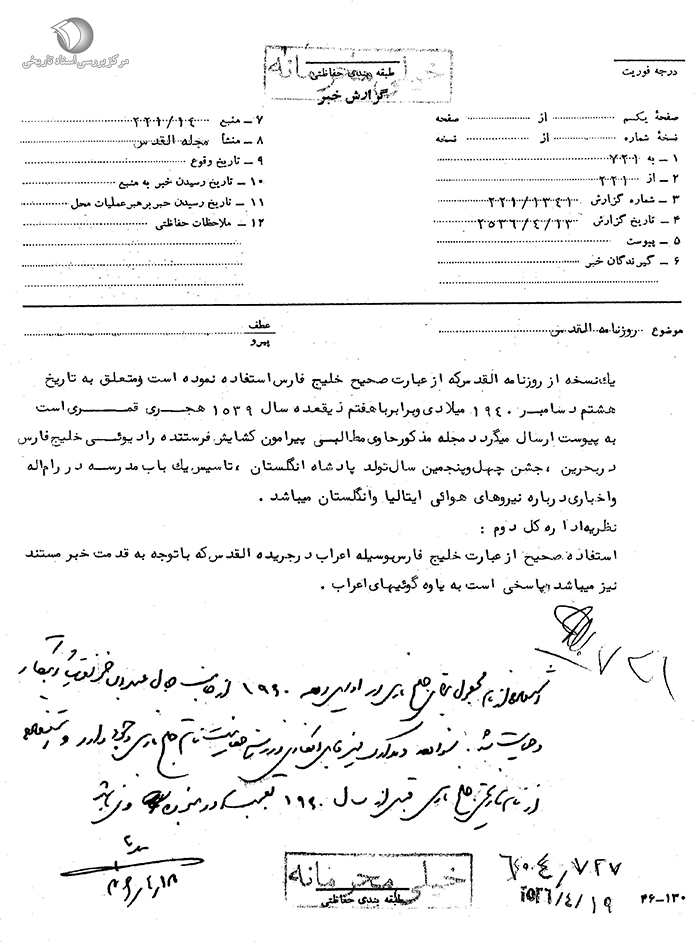 مرکز بررسی اسناد تاریخی
خیلی محرمانه
طبقه بندی حفاظتی
گزارش خبر
درجه فوریت
صفحهٔ یکم از صفحه
نسخهٔ شماره از نسخه
۱ ـ به ۷۲۱
۲ ـ از ۲۲۱
۳ ـ شماره گزارش ۲۲۱/۱۳۴۱
۴ ـ تاریخ گزارش ۲۵۳۶/۴/۱۳
۵ ـ پیوست
۶ ـ گیرندگان خبر
۷ ـ منبع ۲۲۱/۱۴
۸ ـ منشأ مجله القدس
۹ ـ تاریخ وقوع
۱۰ ـ تاریخ رسیدن خبر به منبع
۱۱ ـ تاریخ رسیدن خبر برهبر عملیات محل
۱۲ ـ ملاحظات حفاظتی
موضوع روزنامه القدس
عطف
پیرو
یك نسخه از روزنامه القدس که از عبارت صحیح خلیج فارس استفاده نموده است ومتعلق به تاریخ
هشتم دسامبر ۱۹۴۰ میلادی وبرابر باهفتم ذیقعده سال ۱۵۳۹ هجری قمری است
به پیوست ارسال میگردد مجله مذکور حاوی مطالبی پیرامون گشایش فرستنده رادیوئی خلیج فارس
در بحرین ، جشن چهل وپنجمین سال تولد پادشاه انگلستان ، تاسیس یك باب مدرسه در رام اله
واخباری درباره نیروهای هوائی ایتالیا وانگلستان میباشد .
نظریه اداره کل دوم :
استفاده صحیح از عبارت خلیج فارس بوسیله اعراب در جریده القدس که باتوجه به قدمت خبر مستند
نیز میباشد ، پاسخی است به یاوه گوئیهای اعراب .
۷۲۱
استفاده از نام مجعول بجای خلیج فارس در اوایل دهه ۱۹۶۰ از جانب جمال عبدالناصر
وحمایت شد .
از نام تاریخی خلیج فارس قبل از سال ۱۹۶۰
خیلی محرمانه
طبقه بندی حفاظتی
۷۲۷
۲۵۳۶/۴/۱۹
۴۶-۱۳۰